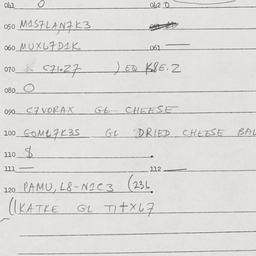 042 O 062 0
050 M1S7LAN7K3
060 MUXL7D1K 061 —
070 C71.27 ) EQ K8E.2
080 O
090 C7VORAX GL CHEESE
100 GOML7K3S GL DRIED CHEESE BAL
110 $
111 — 112 —
120 PAMU, L8-N1C3 (23L
((KATKE GL